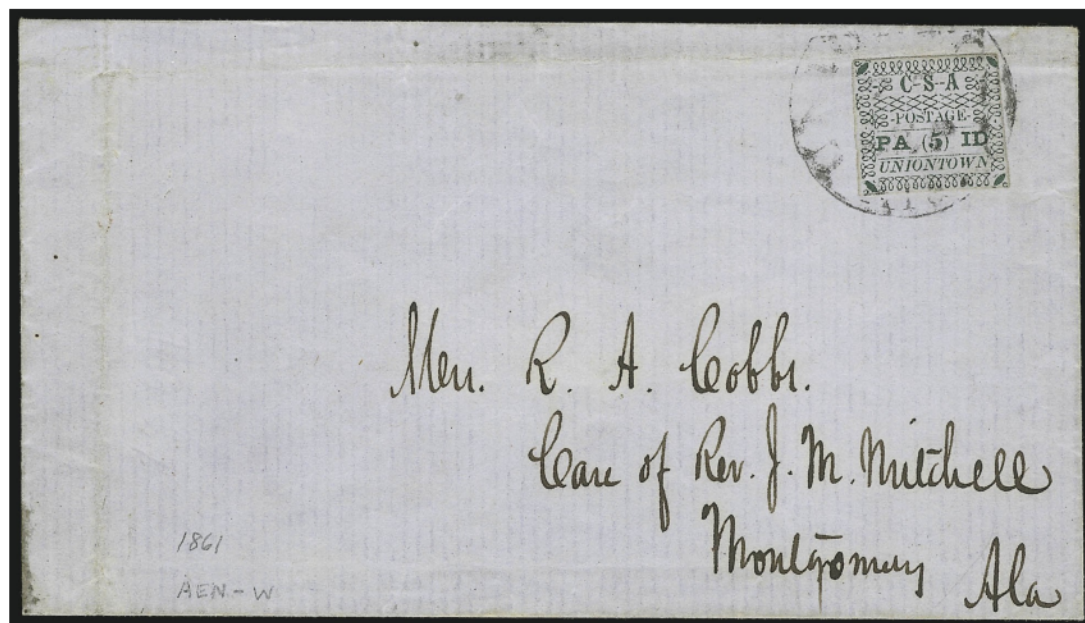 C-S-A
-POSTAGE-
PA (5) ID
UNIONTOWN
Mrs. R. A. Cobbs.
Care of Rev. J. M. Mitchell
Montgomery Ala
1861
AEN.-W